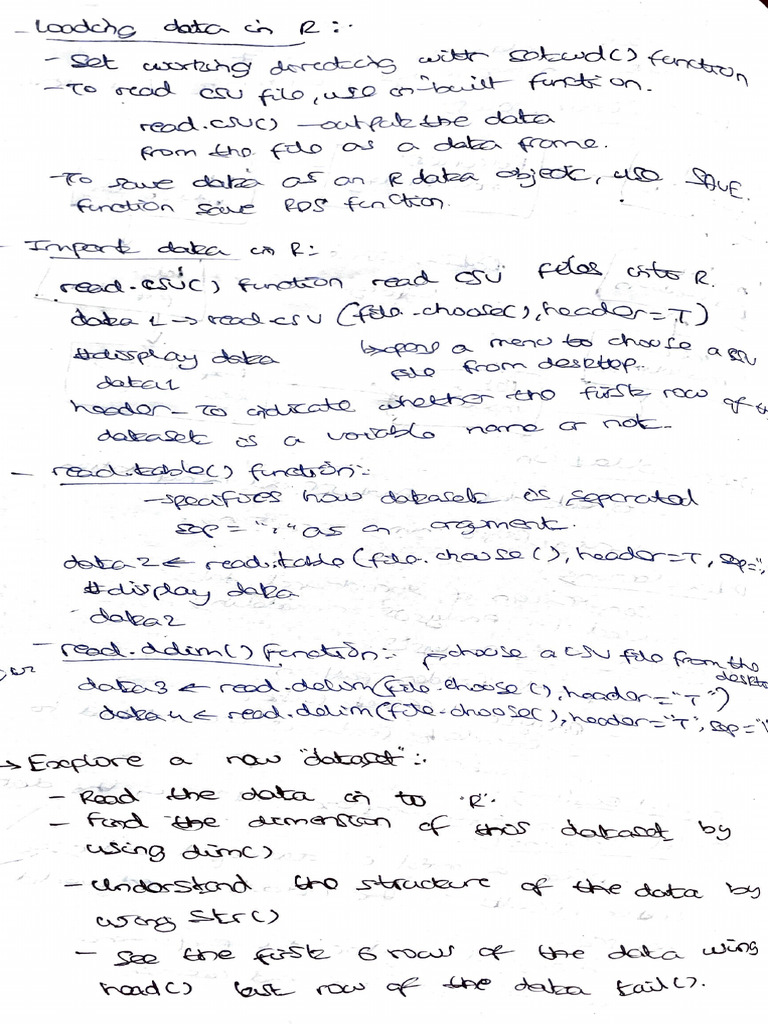 - Loading data in R :-
- Set working directory with setwd() function
- To read csv file, use in-built function.
read.csv() - output the data
from the file as a data frame.
- To save data as an R data object, use SAVE
function save RDS function.
- Import data in R:-
read.csv() function read csv files into R.
data 1 -> read.csv (file.choose(), header=T)
#display data
↳ opens a menu to choose a csv
file from desktop.
data1
header - To indicate whether the first row of th
dataset is a variable name or not.
- read.table() function:-
- specifies how dataset is separated
sep = "," as an argment.
data 2 <- read.table (file.choose(), header=T, sep=",
#display data
data2
- read.delim() function:-
↱ choose a csv file from the
deskto
data3 <- read.delim(file.choose(), header="T")
data4 <- read.delim(file.choose(), header="T", sep="
→ Explore a new "dataset" :-
- Read the data in to "R".
- Find the dimension of this dataset by
using dim()
- Understand the structure of the data by
using Str()
- See the first 6 rows of the data using
head() last row of the data tail().